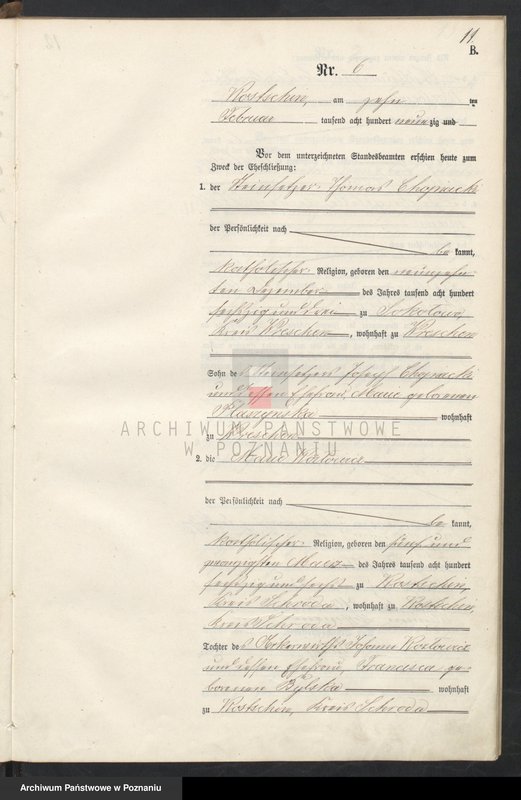 11.
B.
Nr. 6
Kostschin, am zehn ten
Februar tausend acht hundert neunzig und
Vor dem unterzeichneten Standesbeamten erschien heute zum
Zweck der Eheschließung:
1. der Steinsetzer Thomas
der Persönlichkeit nach
be kannt,
katholischer Religion, geboren den neunzehn
ten Dezember des Jahres tausend acht hundert
sechszig und drei zu Sokolowo,
Kreis Wreschen, wohnhaft zu Wreschen
Sohn des Steinsetzers Joseph
und dessen Ehefrau, Marie geborenen
wohnhaft
zu Wreschen
ARCHIWUM PAŃSTWOWE
W POZNANIU
2. die Marie
der Persönlichkeit nach
be kannt,
katholischer Religion, geboren den fünf und
zwanzigsten Maerz des Jahres tausend acht hundert
sechszig und sechs zu Kostschin,
Kreis Schroda, wohnhaft zu Kostschin
Kreis Schroda
Tochter des Ackerwirths Johann
und dessen Ehefrau, Francisca ge-
borenen Bylska wohnhaft
zu Kostschin, Kreis Schroda
Archiwum Państwowe w Poznaniu